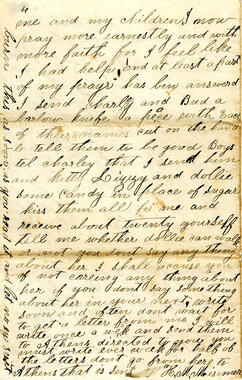 4
me and my children I now
pray more earnestly and with
more faith for I feel like
I had help and at least a part
of my prayrs has bin answerd
I send Charly and Bud a
barlow knife a piece with Each
of their names cut on the hand
le tell them to be good Boys
tel charley that I send him
and Hetty Lizzy and dollie
some candy in place of sugar
kiss them all for me and
receive about twenty yourself
tell me whether dollie can walk
or not you dont say any thing
about her I shall accuse you
of not careing any thing about
her if you dont say something
about her in your next write
soon and often dont wait for
to get a letter from me I will
write once a week and send them
to Athens directed to you you
must write ever week for half of
the letters dont go from her to
Athens that is sent
burn this as soon as you read it